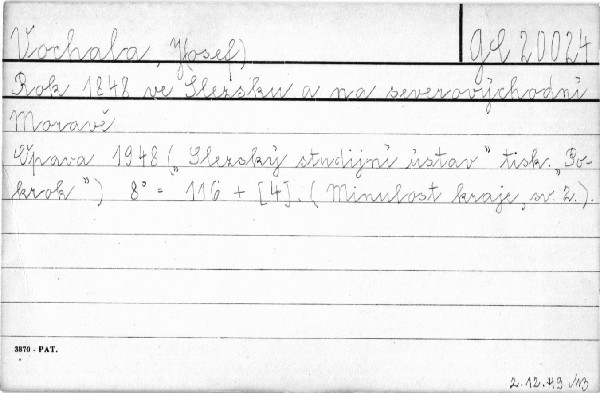 Vochala, J(osef) gC 20024
Rok 1848 ve Slezsku a na severovýchodní
Moravě.
Opava 1948 („Slezský studijní ústav" tisk. „Po-
krok") 8° - 116 + [4]. (Minulost kraje, sv. 2.).
3870 - PAT.
2.12.49